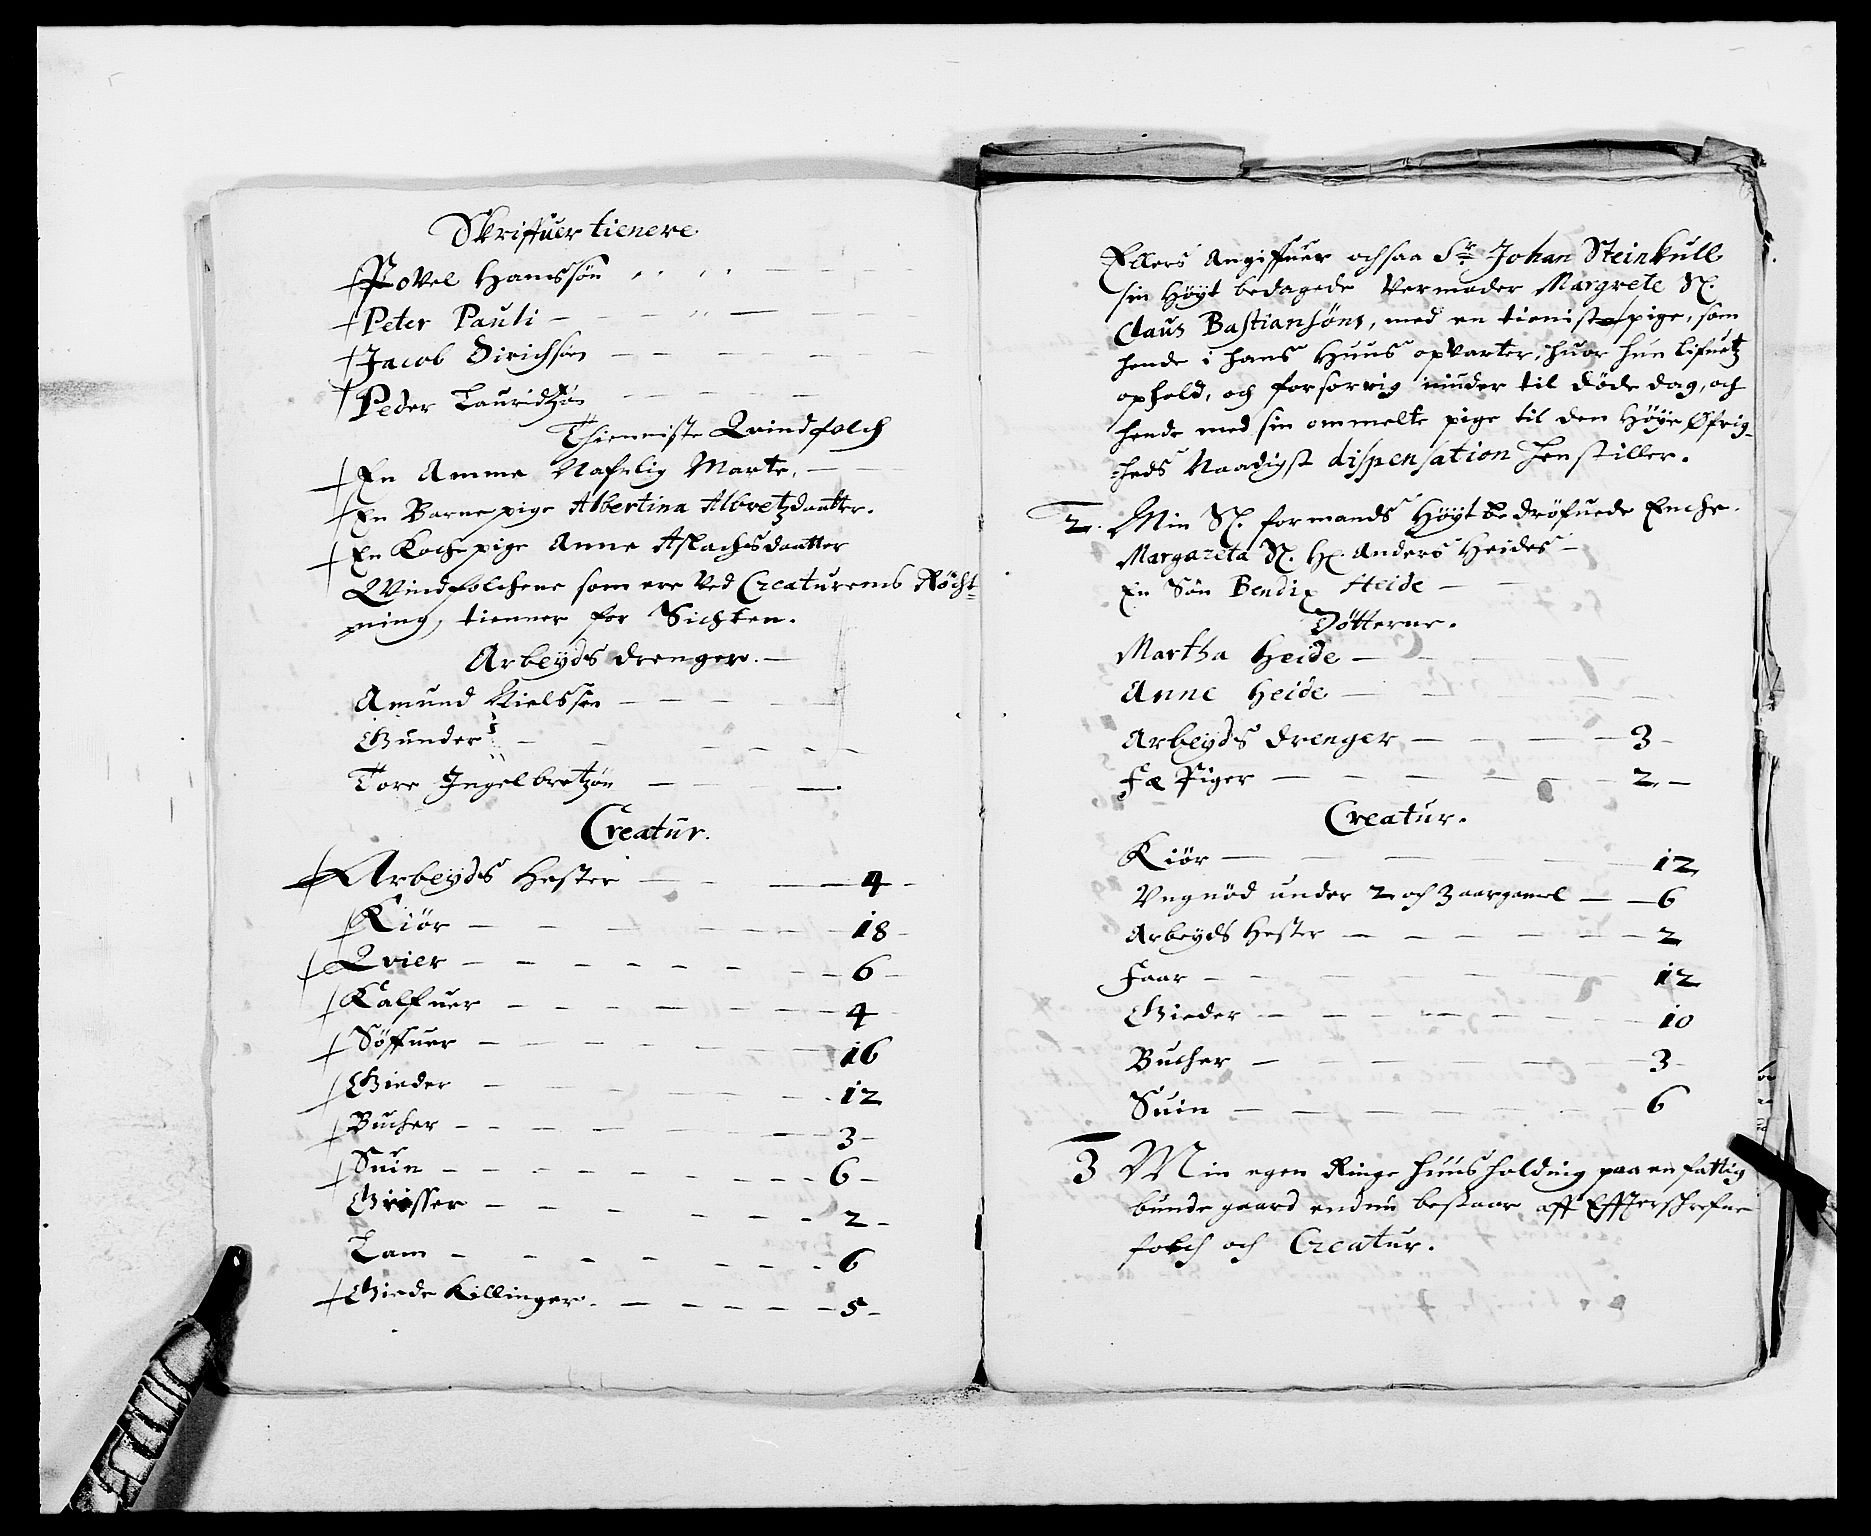 Skriffuer tienere
Povel Hanssøn
Peter Pauli
Jacob Dirichsøn
Peder Lauridtzøn
Thienniste Qvindfolch
En Amme Nafnlig Marte.
En Barne pige Albertina Albretzdaatter.
En Kocke pige Anne Aslachsdaatter
Qvindfolchene som ere ved Creaturens Røcht-
ning, tienner for Sichten.
Arbeyds drenger.
Amund Nielssøn
Gunder
Tore Ingelbretzøn
Creatur.
Arbeyds Hester 4
Kiør 18
Qvier 6
Kalfuer 4
Søffuer 16
Gieder 12
Bucher 3
Suin 6
Grisser 2
Lam 6
Giede Killinger 5
Ellers Angiffuer ochsaa Sr. Johan Steinkull
sin Høyt bedagede Vermoder Margrete Sl.
Claus Bastiansøns, med en tienist pige, som
hende i hans Huus opvarter, huor hun lifuetz
ophold, och forsorrig niuder til døde dag, och
hende med sin ommelte pige til den Høye Øfrig-
heds Naadigst dispensation henstiller.
2. Min Sl. formands Høyt bedrøfuede Enche.
Margareta Sl. Hr. Anders Heides
En Søn Bendix Heide
Døtterne.
Martha Heide
Anne Heide
Arbeyds drenger 3
Fæ Piger 2
Creatur.
Kiør 12
Ungnød under 2 och 3 aar gamel 6
Arbeyds Hester 2
Faar 12
Gieder 10
Bucher 3
Suin 6
3 Min egen Ringe huusholding paa en fattig
bunde gaard endnu bestaar aff Effterschrefne
folch och Creatur.